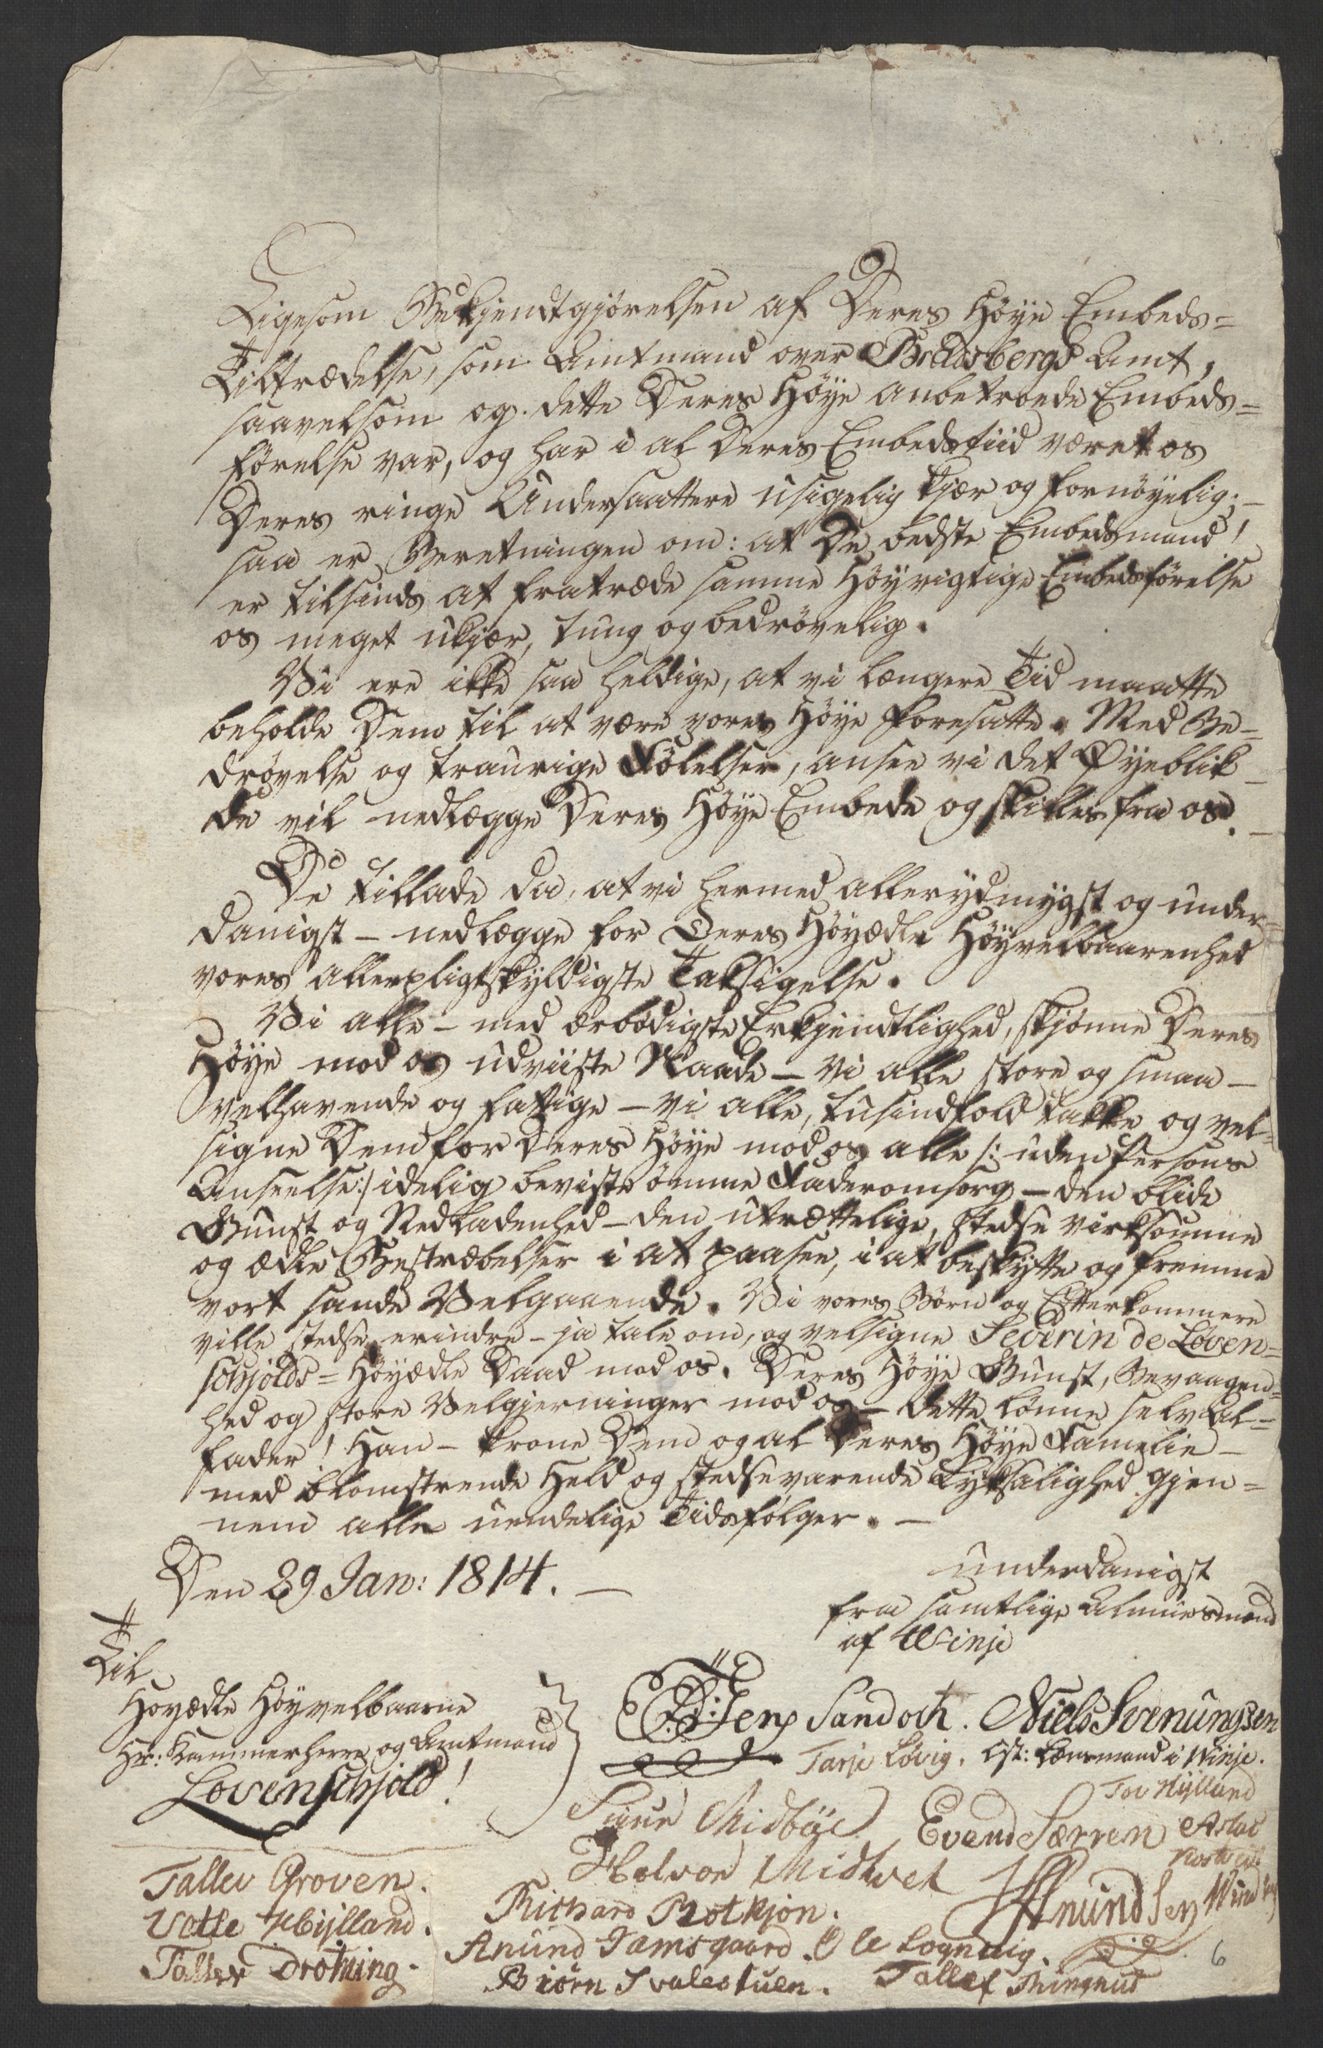 Ligesom Bekjendtgjørelsen af Deres Høye Embeds=
Tiltrædelse, som Amtmand over Bradsbergs Amt,
saavelsom og dette Deres Høye anbetroede Embeds=
førelse var, og har i al Deres Embedstiid været os
Deres ringe Undersaattere usigelig kjær og fornøyelig; —
saa er Beretningen om: at De bedste Embedsmand!
er tilsinds at fratræde samme Høyvigtige Embedsførelse
os meget ukjær, tung og bedrøvelig.
Vi ere ikke saa heldige, at vi længere Tid maatte
beholde Dem til at være vores Høye Foresatte. Med Be=
drøvelse og traurige Følelser, ansee vi det Øyeblik
De vil nedlægge Deres Høye Embede og skilles fra os. —
De tillade da, at vi hermed allerydmygst og under=
danigst — nedlægge for Deres Høyædle Høyvelbaarenhed
vores allerpligtskyldigste Taksigelse.
Vi alle — med ærbødigste Erkjendtlighed, skjønne Deres
Høye mod os udviiste Naade — Vi alle store og smaa —
velhavende og fattige — vi alle, tusindfold takke og vel=
signe Dem for Deres Høye mod os alle /: uden Persons
Anseelse :/ idelig beviste ømme Faderomsorg — den blide
Gunst og Nedladenhed — den utrættelige, stedse virksomme
og ædle Bestræbelser i at paasee, i at beskytte og fremme
vort sande Velgaaende. Vi vores Børn og Efterkommere
ville stedse erindre — ja tale om, og velsigne Severin de Løven=
schjolds= Høyædle Daad mod os. Deres Høye Gunst, Bevaagen=
hed og store Velgjerninger mod os — dette lønne selv Al=
fader! Han — krone Dem og al Deres Høye Famelie —
med blomstrende Held og stedsevarende Lyksalighed gjen=
nem alle uendelige Tidsfølger. —
Den 29 Jan: 1814. —
underdanigst
fra samtlige Almuesmænd
af Winje
Til
Høyædle Høyvelbaarne
Hr: Kammerherre og Amtmand
Løvenschjold!
Jens Sandock. Niels Svenungsen
Tarje Løvig. Cst: Lænsmand i Winje.
Tor Hylland
Midbøe Evend Særren Aslac
Halvor Midtvet
Tallev Groven.
Vetle Hyjlland.
Tallev Drotning.
Richard Botkjøn. Anundsen
Anund Jamsgaard. Ole Logndvig.
Biørn Svalestuen. Tallef
6